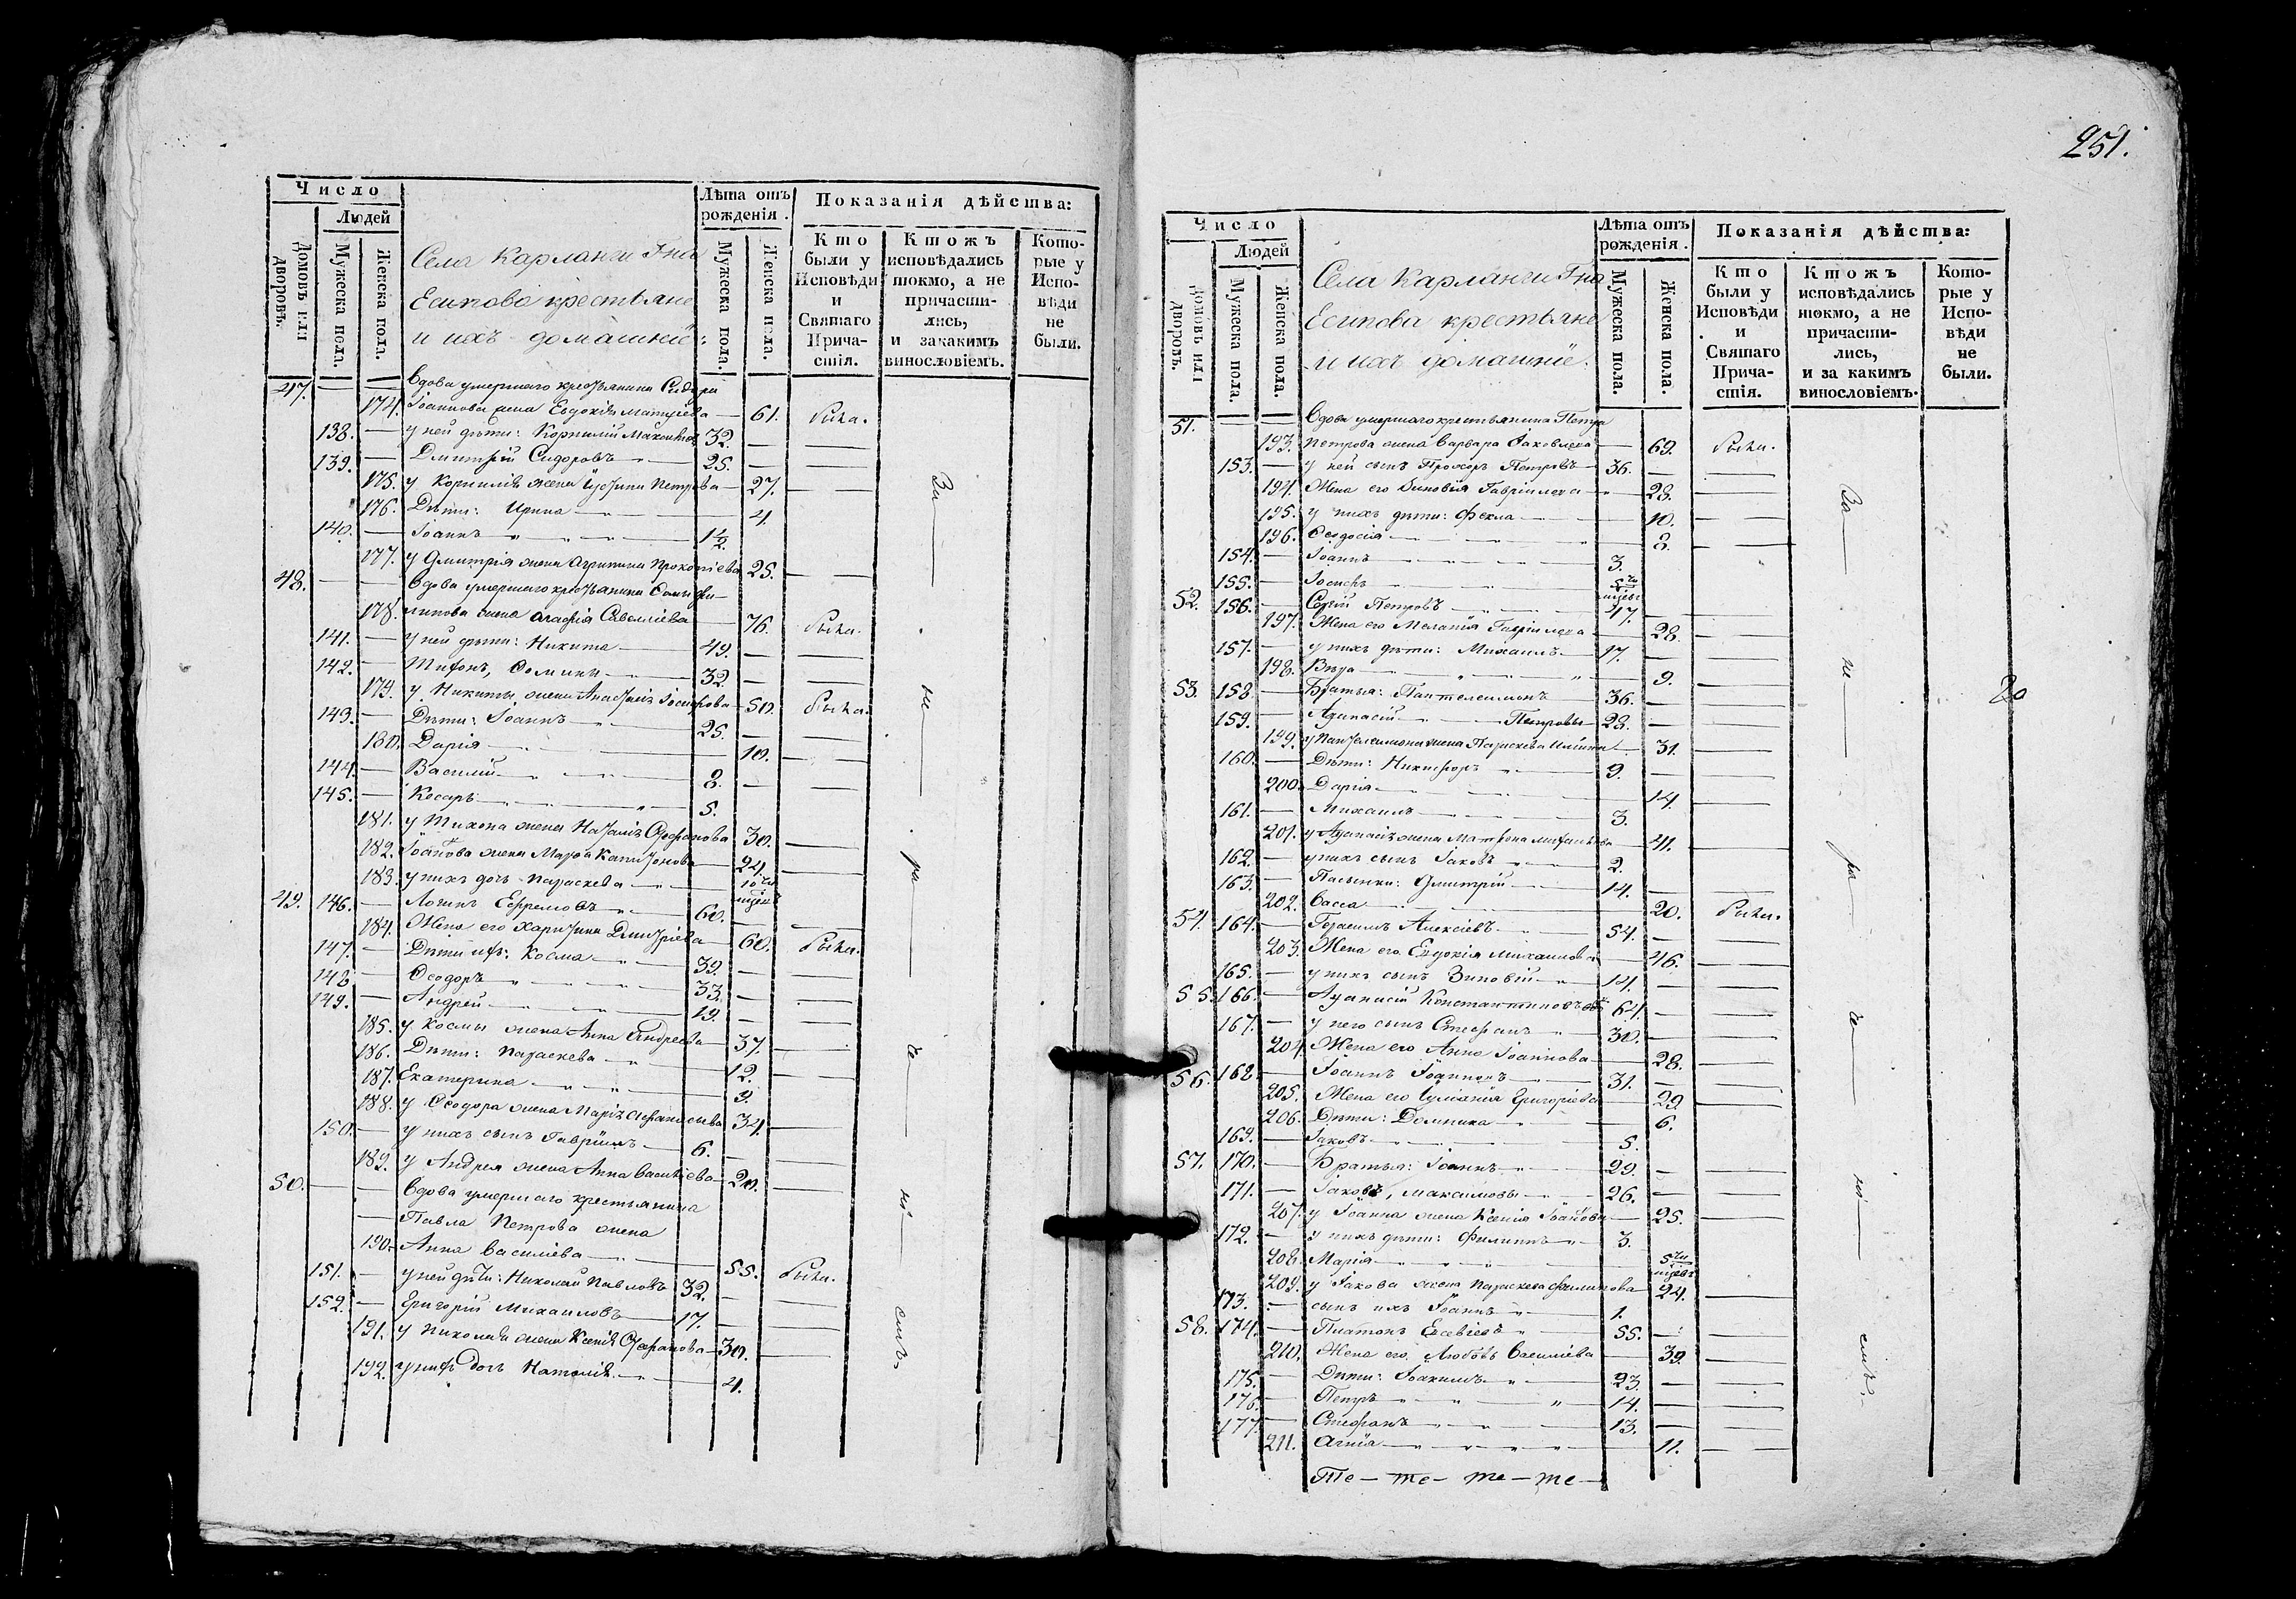 Число
Людей
Домовъ или дворовъ.
Мужеска пола.
Женска пола.
Села Карланги Гна
Есипова крестьяне
и ихъ домашніе:
Лѣта отъ рожденія.
Мужеска пола.
Женска пола.
Показанія дѣйства:
Кто были у Исповѣди и Святаго Причастія.
Ктожъ исповѣдались токмо, а не причастились, и закакимъ винословіемъ.
Которые у Исповѣди не были.
47. Вдова умершаго крестьянина Сидора
174. Іоаннова жена Евдокія Матѳіева 61. была.
138. у ней дѣти: Корнилій 32.
139. Дмитрій Сидоровъ 25.
175. у Корнилія жена Іустина Петрова 27.
176. Дѣти: Ирина 4.
140. Іоаннъ 1½.
177. у Дмитрія жена Агрипина Прокопіева 25.
48. Вдова умершаго крестьянина Ѳомы Фи-
178. липова жена Агафія Савеліева 76. была.
141. у ней дѣти: Никита 49.
142. Тихонъ, Ѳомины 32.
179. у Никиты жена Анастасія Іосифова 50. была.
143. Дѣти: Іоаннъ 25.
180. Дарія 10.
144. Василій 8.
145. Кесарь 5.
181. у Тихона жена Наталія Стефанова 30.
182. Іоаннова жена Марѳа Капитонова 24.
183. у нихъ дочь Параскева 10ти
49. 146. Логинъ Ефремовъ 60.
184. Жена его Харитина Дмитріева 60. была.
147. Дѣти ихъ: Косма 39.
148. Ѳеодоръ 33.
149. Андрей 19.
185. у Космы жена Анна Андреева 37.
186. Дѣти: Параскева 12.
187. Екатерина 9.
188. у Ѳеодора жена Марія Аѳанасьева 34.
150. у нихъ сынъ Гавріилъ 6.
189. у Андрея жена Анна Василіева 20.
50. Вдова умершаго крестьянина
Павла Петрова жена
190. Анна Василіева 55. была.
151. у ней дѣти: Николай Павловъ 32.
152. Григорій Михаиловъ 17.
191. у Николая жена Ксенія Стефанова 30.
192. у нихъ дочь Наталія 4.
За не ра че ні емъ.
251.
Число
Людей
Домовъ или дворовъ.
Мужеска пола.
Женска пола.
Села Карланги Гна
Есипова крестьяне
и ихъ домашніе.
Лѣта отъ рожденія.
Мужеска пола.
Женска пола.
Показанія дѣйства:
Кто были у Исповѣди и Святаго Причастія.
Ктожъ исповѣдались токмо, а не причастились, и за какимъ винословіемъ.
Которые у Исповѣди не были.
51. Вдова умершаго крестьянина Петра
193. Петрова жена Варвара Іаковлева 69. была.
153. у ней сынъ Прохоръ Петровъ 36.
194. Жена его Зиновія Гавріилова 28.
195. у нихъ дѣти: Фекла 10.
196. Ѳеодосія 8.
154. Іоаннъ 3.
155. Іосифъ 5ти
52. 156. Сергій Петровъ 47.
197. Жена его Меланія Гавріилова 28.
157. у нихъ дѣти: Михаилъ 17.
198. Вѣра 9.
53. 158. Братья: Пантелеимонъ 36.
159. Аѳанасій Петровы 28.
199. у Пантелеимона жена Параскева 31.
160. Дѣти: Никифоръ 9.
200. Дарія 14.
161. Михаилъ 3.
201. у Аѳанасія жена Матрона 41.
162. у нихъ сынъ Іаковъ 2.
163. Пасынки: Дмитрій 14.
202. Васса 20. была.
54. 164. Герасимъ Алексіевъ 54.
203. Жена его Евдокія Михаилова 46.
165. у нихъ сынъ Зиновій 14.
55. 166. Аѳанасій Константиновъ 64.
167. у него сынъ Стефанъ 30.
204. Жена его Анна Іоаннова 28.
56. 168. Іоаннъ Іоанновъ 31.
205. Жена его Іуліанія Григоріева 29.
206. Дѣти: Домника 6.
169. Іаковъ 5.
57. 170. Братья: Іоаннъ 29.
171. Іаковъ, Максимовы 26.
207. у Іоанна жена Ксенія Іоаннова 25.
172. у нихъ дѣти: Филиппъ 3.
208. Марія 5ти
209. у Іакова жена Параскева Филипова 24.
173. сынъ ихъ Іоаннъ 1.
58. 174. Платонъ Евсевіевъ 55.
210. Жена его Любовь Василіева 39.
175. Дѣти: Іоакимъ 23.
176. Петръ 14.
177. Стефанъ 13.
211. Агнія 11.
Те- те- те- те-
За не ра че ні емъ.
20